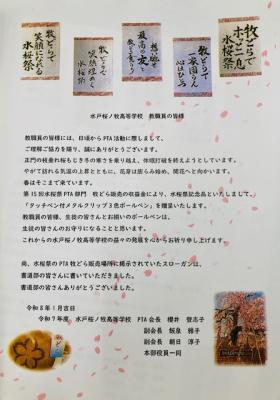 牧どらで
笑顔になる
水桜祭
牧どらで
笑顔煌めく
水桜祭
想い出を
最高の友と
牧どら食う
牧どらで
一家団らん
心はひとつ
牧どらで
ホッと一息
水桜祭
水戸桜ノ牧高等学校 教職員の皆様
教職員の皆様には、日頃からPTA活動に際しまして、
ご理解ご協力を賜り、誠にありがとうございます。
正門の枝垂れ桜もじき冬の寒さを乗り越え、休眠打破を終えようとしています。
やがて訪れる気温の上昇とともに、花芽は膨らみ始め、開花へと向かいます。
春はそこまで来ています。
第15回水桜祭PTA部門 牧どら販売の収益金により、水桜祭記念品といたしまして、
「タッチペン付メタルクリップ3色ボールペン」を贈呈いたします。
教職員の皆様、生徒の皆さんとお揃いのボールペンは、
生徒の皆さんのお守りになることと思います。
これからの水戸桜ノ牧高等学校の益々の発展を心からお祈り申し上げます。
尚、水桜祭のPTA牧どら販売場所に掲示されていたスローガンは、
書道部の皆さんに書いていただきました。
書道部の皆さんありがとうございました。
令和8年1月吉日
令和7年度 水戸桜ノ牧高等学校 PTA会長 櫻井 登志子
副会長 飯泉 雅子
副会長 朝日 淳子
本部役員一同